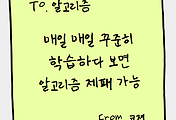 To. 알고리즘
매일 매일 꾸준히
학습하다 보면
알고리즘 제패 가능
From